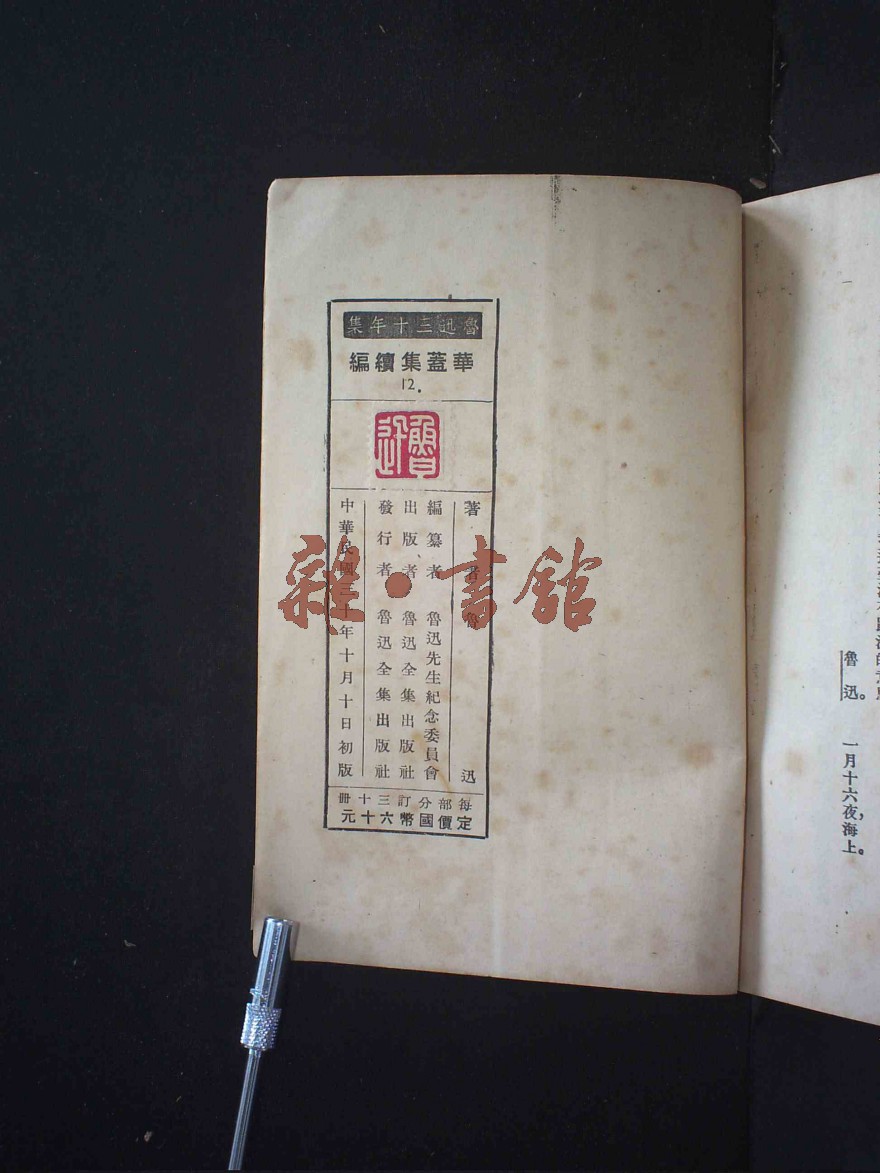 魯迅三十年集
華蓋集續編
12.
魯迅
著者 魯迅
編纂者 魯迅先生紀念委員會
出版者 魯迅全集出版社
發行者 魯迅全集出版社
中華民國三十年十月十日初版
每部分訂三十冊
定價國幣六十元
雜·書館
魯迅。 一月十六夜,海上。